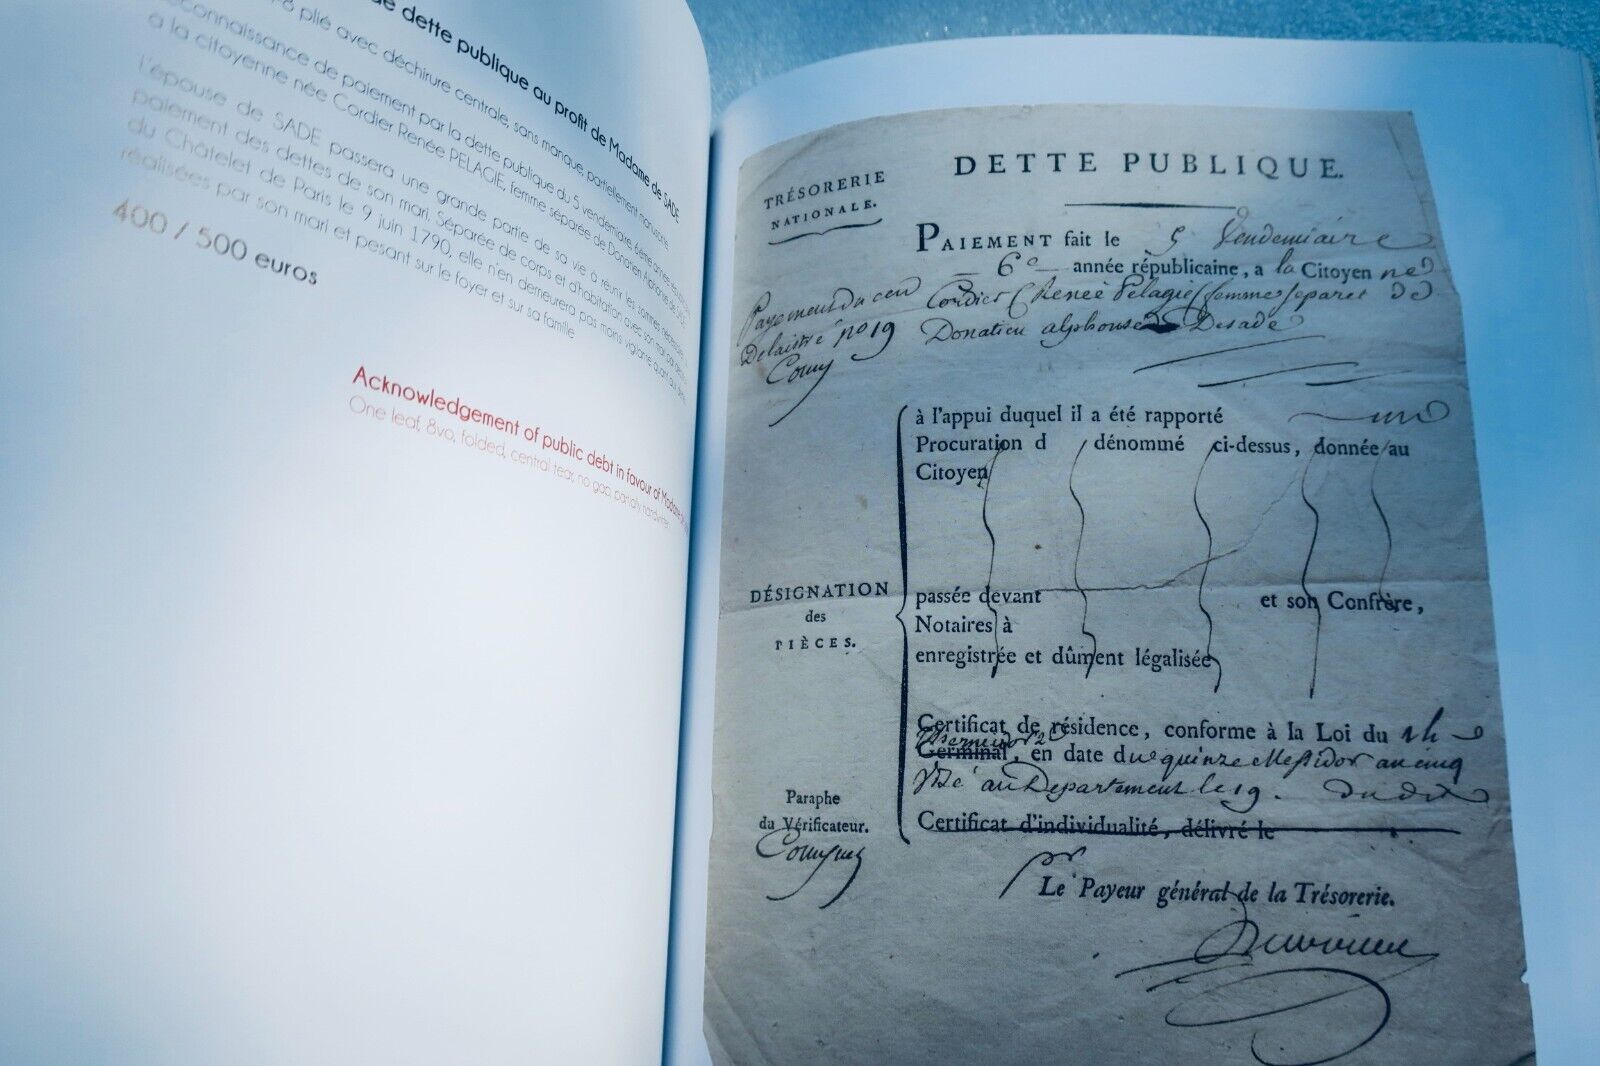 de dette publique au profit de Madame de SADE
8 plié avec déchirure centrale, sans manque, partiellement manuscrite
reconnaissance de paiement par la dette publique du 5 vendemiaire 6ème année
à la citoyenne née Cordier Renée PELAGIE, femme séparée de Donatien Alphonse de SADE
L'épouse de SADE passera une grande partie de sa vie à réunir les sommes nécessaires
paiement des dettes de son mari. Séparée de corps et d'habitation avec son mari par
du Châtelet de Paris le 9 juin 1790, elle n'en demeurera pas moins vigilante quant aux
réalisées par son mari et pesant sur le foyer et sur sa famille
400 / 500 euros
Acknowledgement of public debt in favour of Madame de
One leaf, 8vo, folded, central tear, no gap, partially handwritten
TRÉSORERIE
NATIONALE.
DETTE PUBLIQUE.
PAIEMENT fait le 5 Vendemiaire
6e année républicaine, a la Citoyen née
Cordier (Renée Pelagie) femme separée de
Donatien alphonse Desade
Payement du cen
Delaissé no 19
à l'appui duquel il a été rapporté une
Procuration d dénommé ci-dessus, donnée au
Citoyen
DÉSIGNATION
des
PIÈCES.
passée devant et son Confrère,
Notaires à
enregistrée et dûment légalisée
Certificat de résidence, conforme à la Loi du
Germinal, en date du quinze Messidor an cinq
visé au Departement le 19.
Certificat d'individualité, délivré le
Paraphe
du Vérificateur.
Le Payeur général de la Trésorerie.